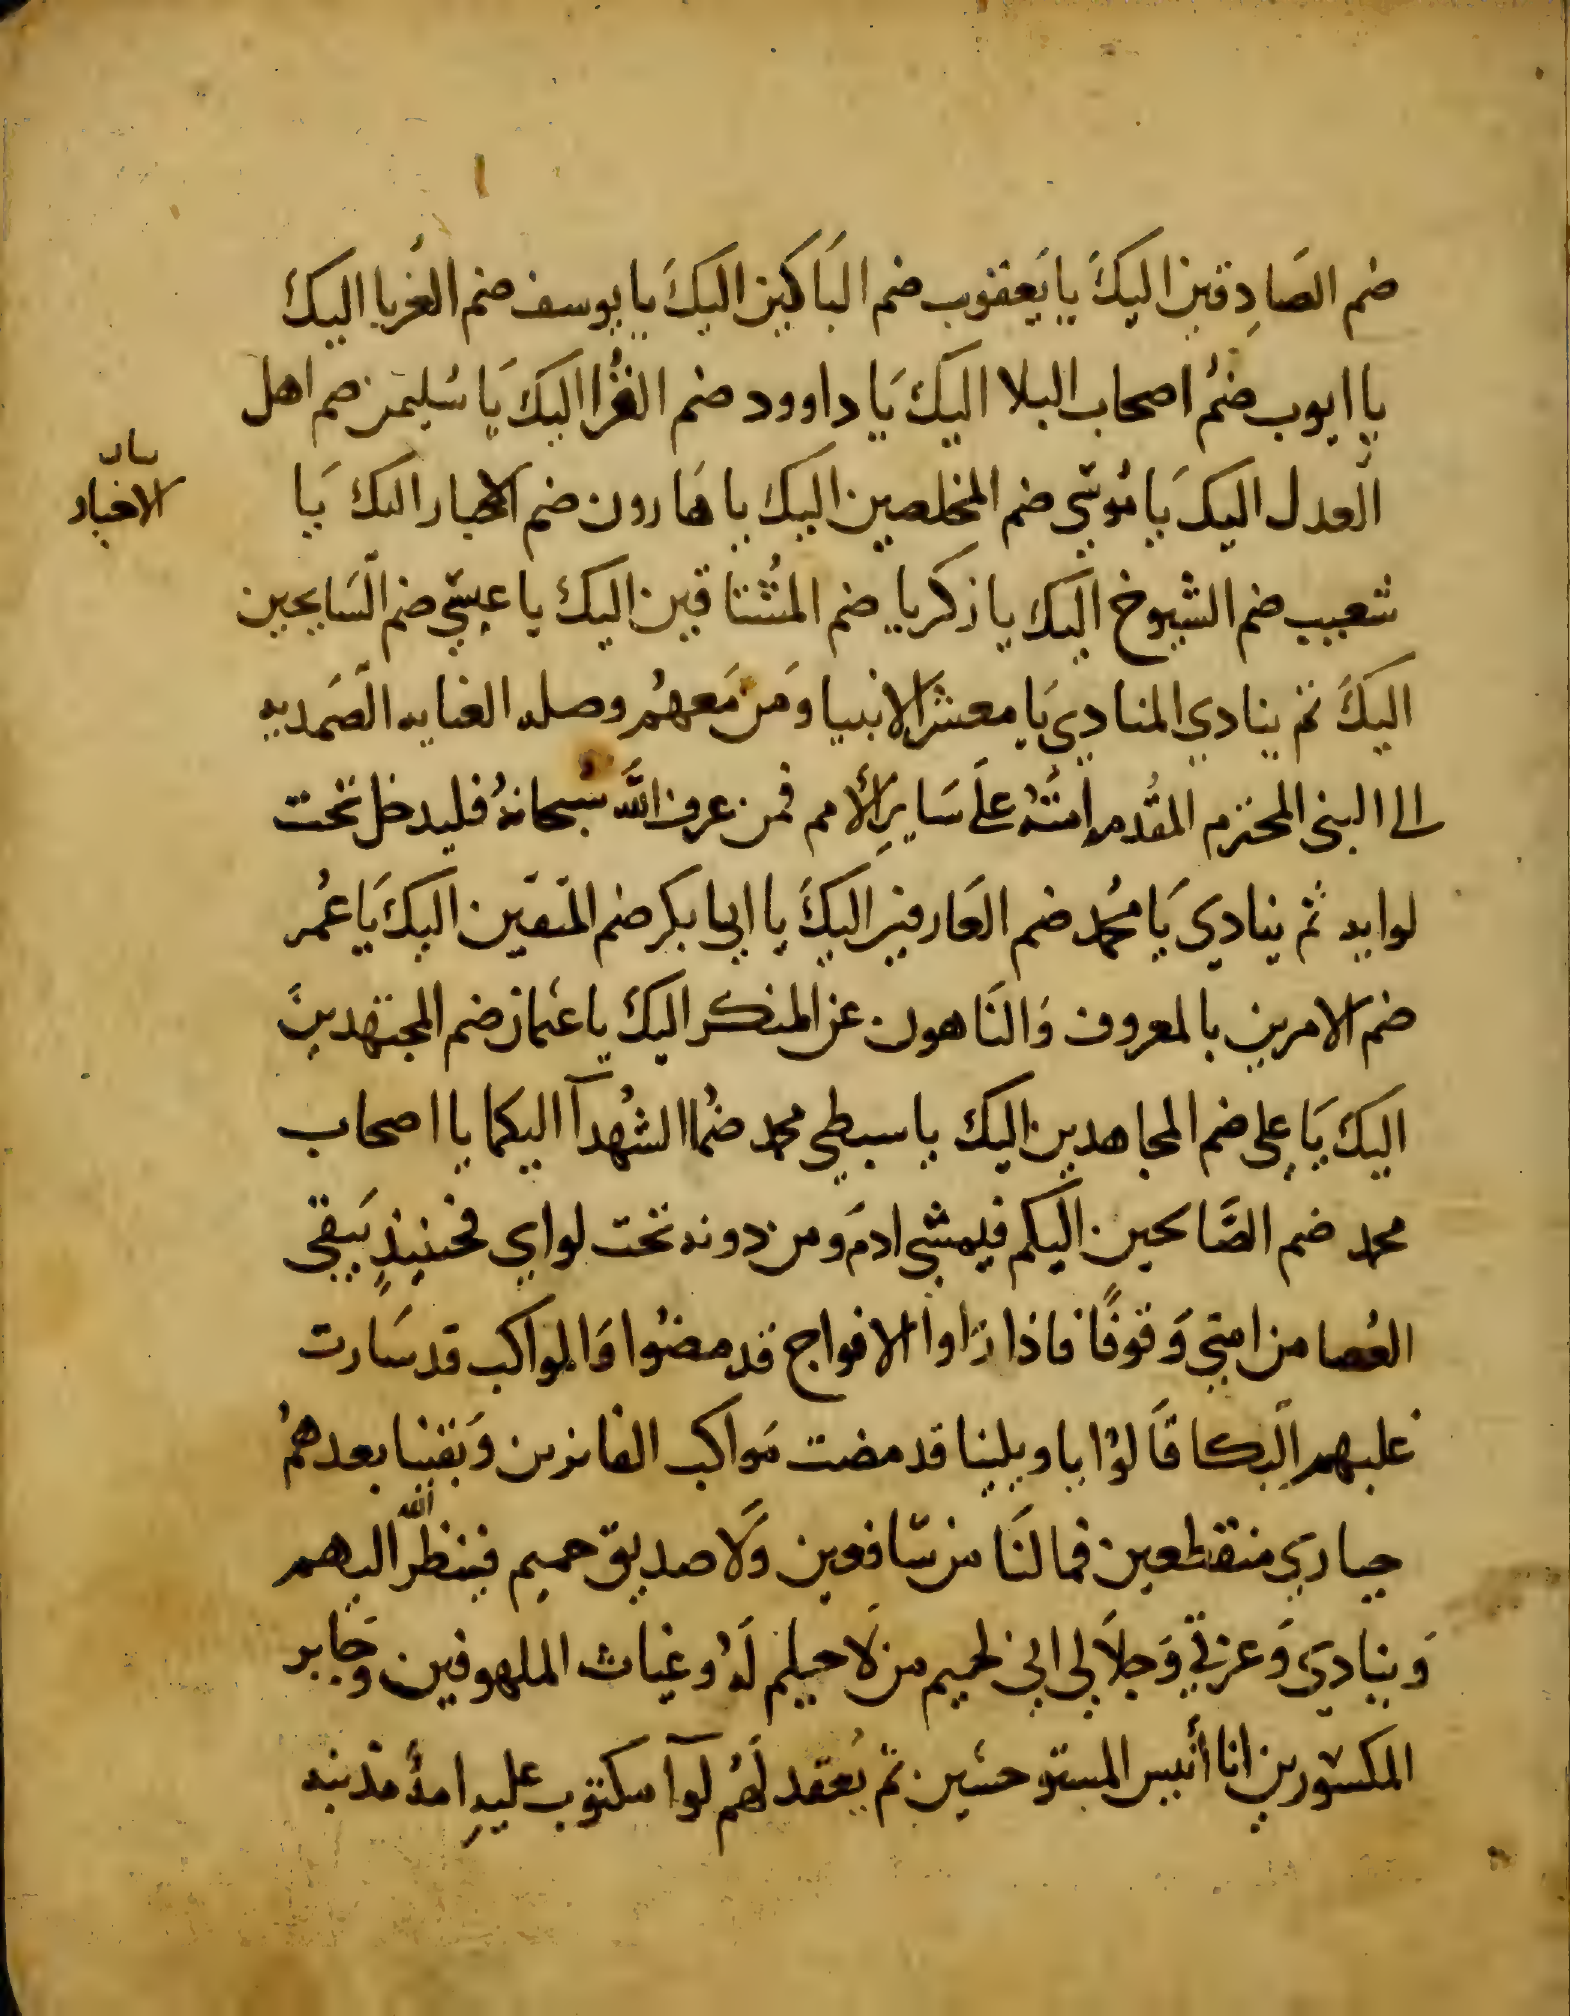 ضم الصَادِقين اليكَ يا يَعقوب ضم البَاكين اليكَ يا يوسف ضم الغُربا اليك
يا ايوب ضمُ اصحاب البلا اليك يَا داوود ضم الغُزا اليكَ يَا سُليمن ضم اهل
العدل اليكَ يَا مُوسَي ضم المخلصين اليك يا هَارون ضم الاخيار اليك يَا
بيان
الاخيار
شعيب ضم الشيوخ اليك يا زكريا ضم المُشتاقين اليك يا عيسَي ضم السَايحين
اليكَ ثم ينادي المنادِي يَا معشر الانبيا وَمَن مَعهُم وصله العنايه الصَمديه
الى النبى المحترم المقُدم امتهُ علَى سَايرِ الأمم فمن عرف اللَّه سُبحانهُ فليدخل تحت
لوايه ثم ينادي يَا مُحمد ضم العَارفين اليكَ يا ابى بكر ضم المتقين اليكَ يَا عُمر
ضم الامرين بالمعروف وَالنَاهون عن المنكر اليكَ يا عثمان ضم المجتهدينَ
اليكَ يَا على ضم المجاهدين اليك يا سبطي محمد ضُما الشُهدآ اليكما يا اصحاب
محمد ضم الصَّالحين اليكم فيمشي ادمَ ومن دونه تحت لواي فحينيذٍ يَبقى
العُصا من امتي وَقوفًا فاذا رَاوا الافواج قد مضوا وَالمواكب قد سَارت
غلبهم البكا قَالوُا يا ويلينا قد مضت مَواكب الفايزين وَبقينا بعدهمُ
حيارى منقطعين فما لنَا من شَافعين وَلا صديق حميم فينظر الله اليهم
وَينادي وَعزتي وَجلاَلى انى لحميم من لَا حيلم لَهُ وغياث الملهوفين وَجَابر
المكسورين انا أنيس المستوحشين ثم يُعقد لَهُم لوآ مكتوب عليهِ امةُ مذنبه